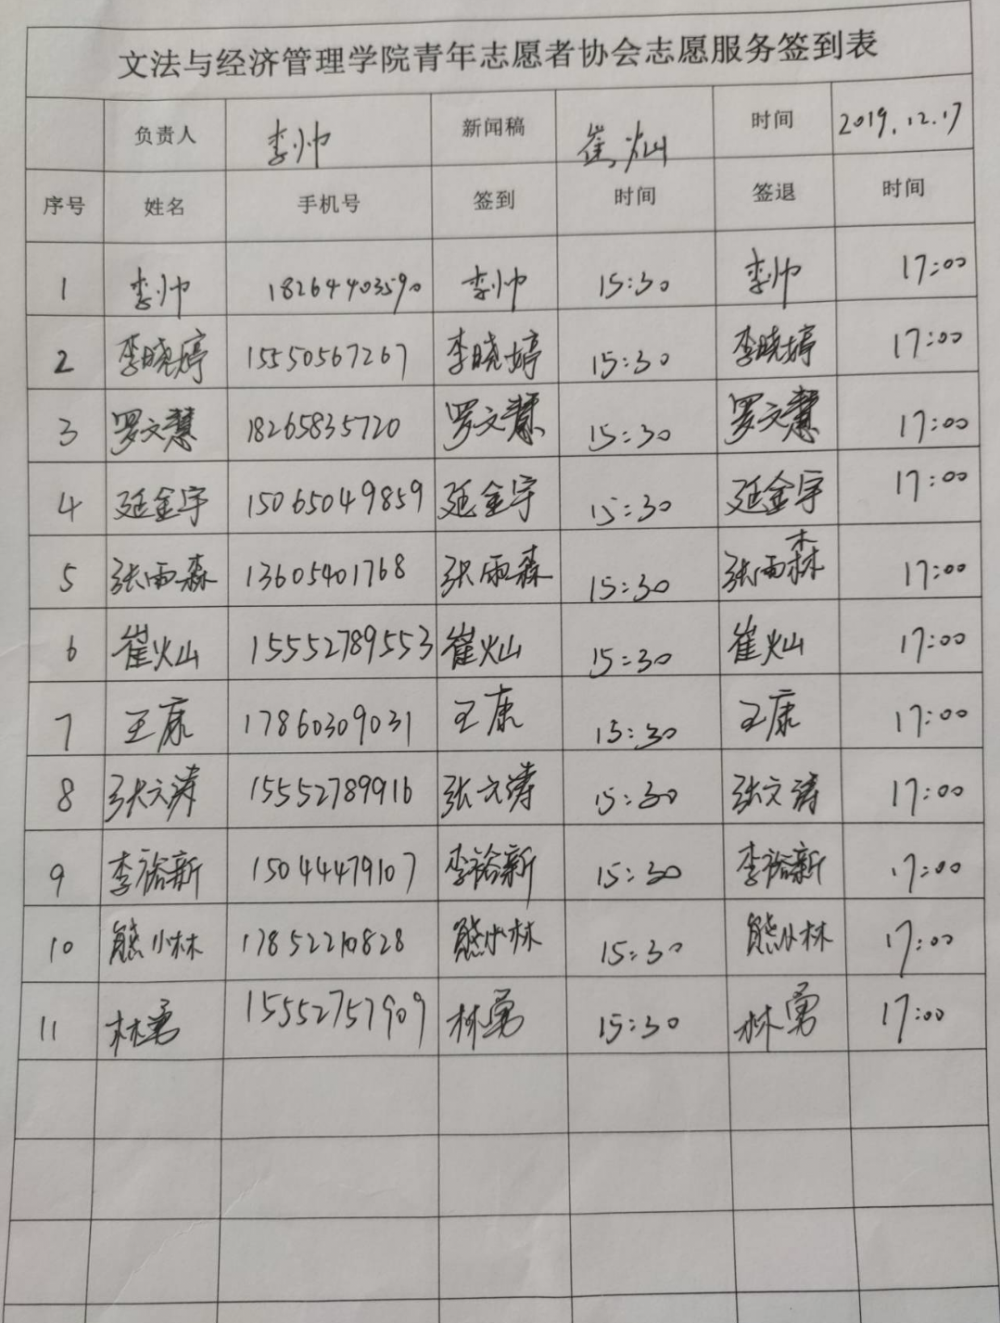 文法与经济管理学院青年志愿者协会志愿服务签到表
负责人 李帅 新闻稿 崔灿 时间 2019.12.17
序号 姓名 手机号 签到 时间 签退 时间
1 李帅 18264403590 李帅 15:30 李帅 17:00
2 李晓婷 15550567267 李晓婷 15:30 李晓婷 17:00
3 罗文慧 18265835720 罗文慧 15:30 罗文慧 17:00
4 延金宇 15065049859 延金宇 15:30 延金宇 17:00
5 张雨森 13605401768 张雨森 15:30 张雨森 17:00
6 崔灿 15552789553 崔灿 15:30 崔灿 17:00
7 王康 17860309031 王康 15:30 王康 17:00
8 张文涛 15552789916 张文涛 15:30 张文涛 17:00
9 李裕新 15044479107 李裕新 15:30 李裕新 17:00
10 熊小林 17852210828 熊小林 15:30 熊小林 17:00
11 林勇 15552757909 林勇 15:30 林勇 17:00